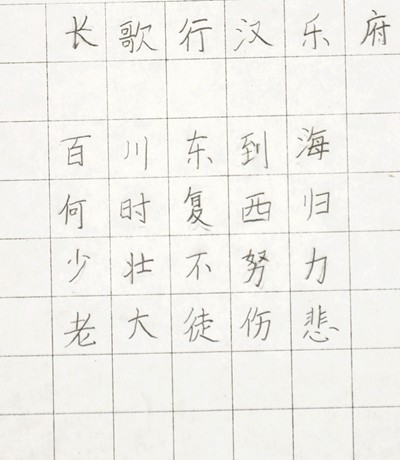 长歌行汉乐府
百川东到海
何时复西归
少壮不努力
老大徒伤悲